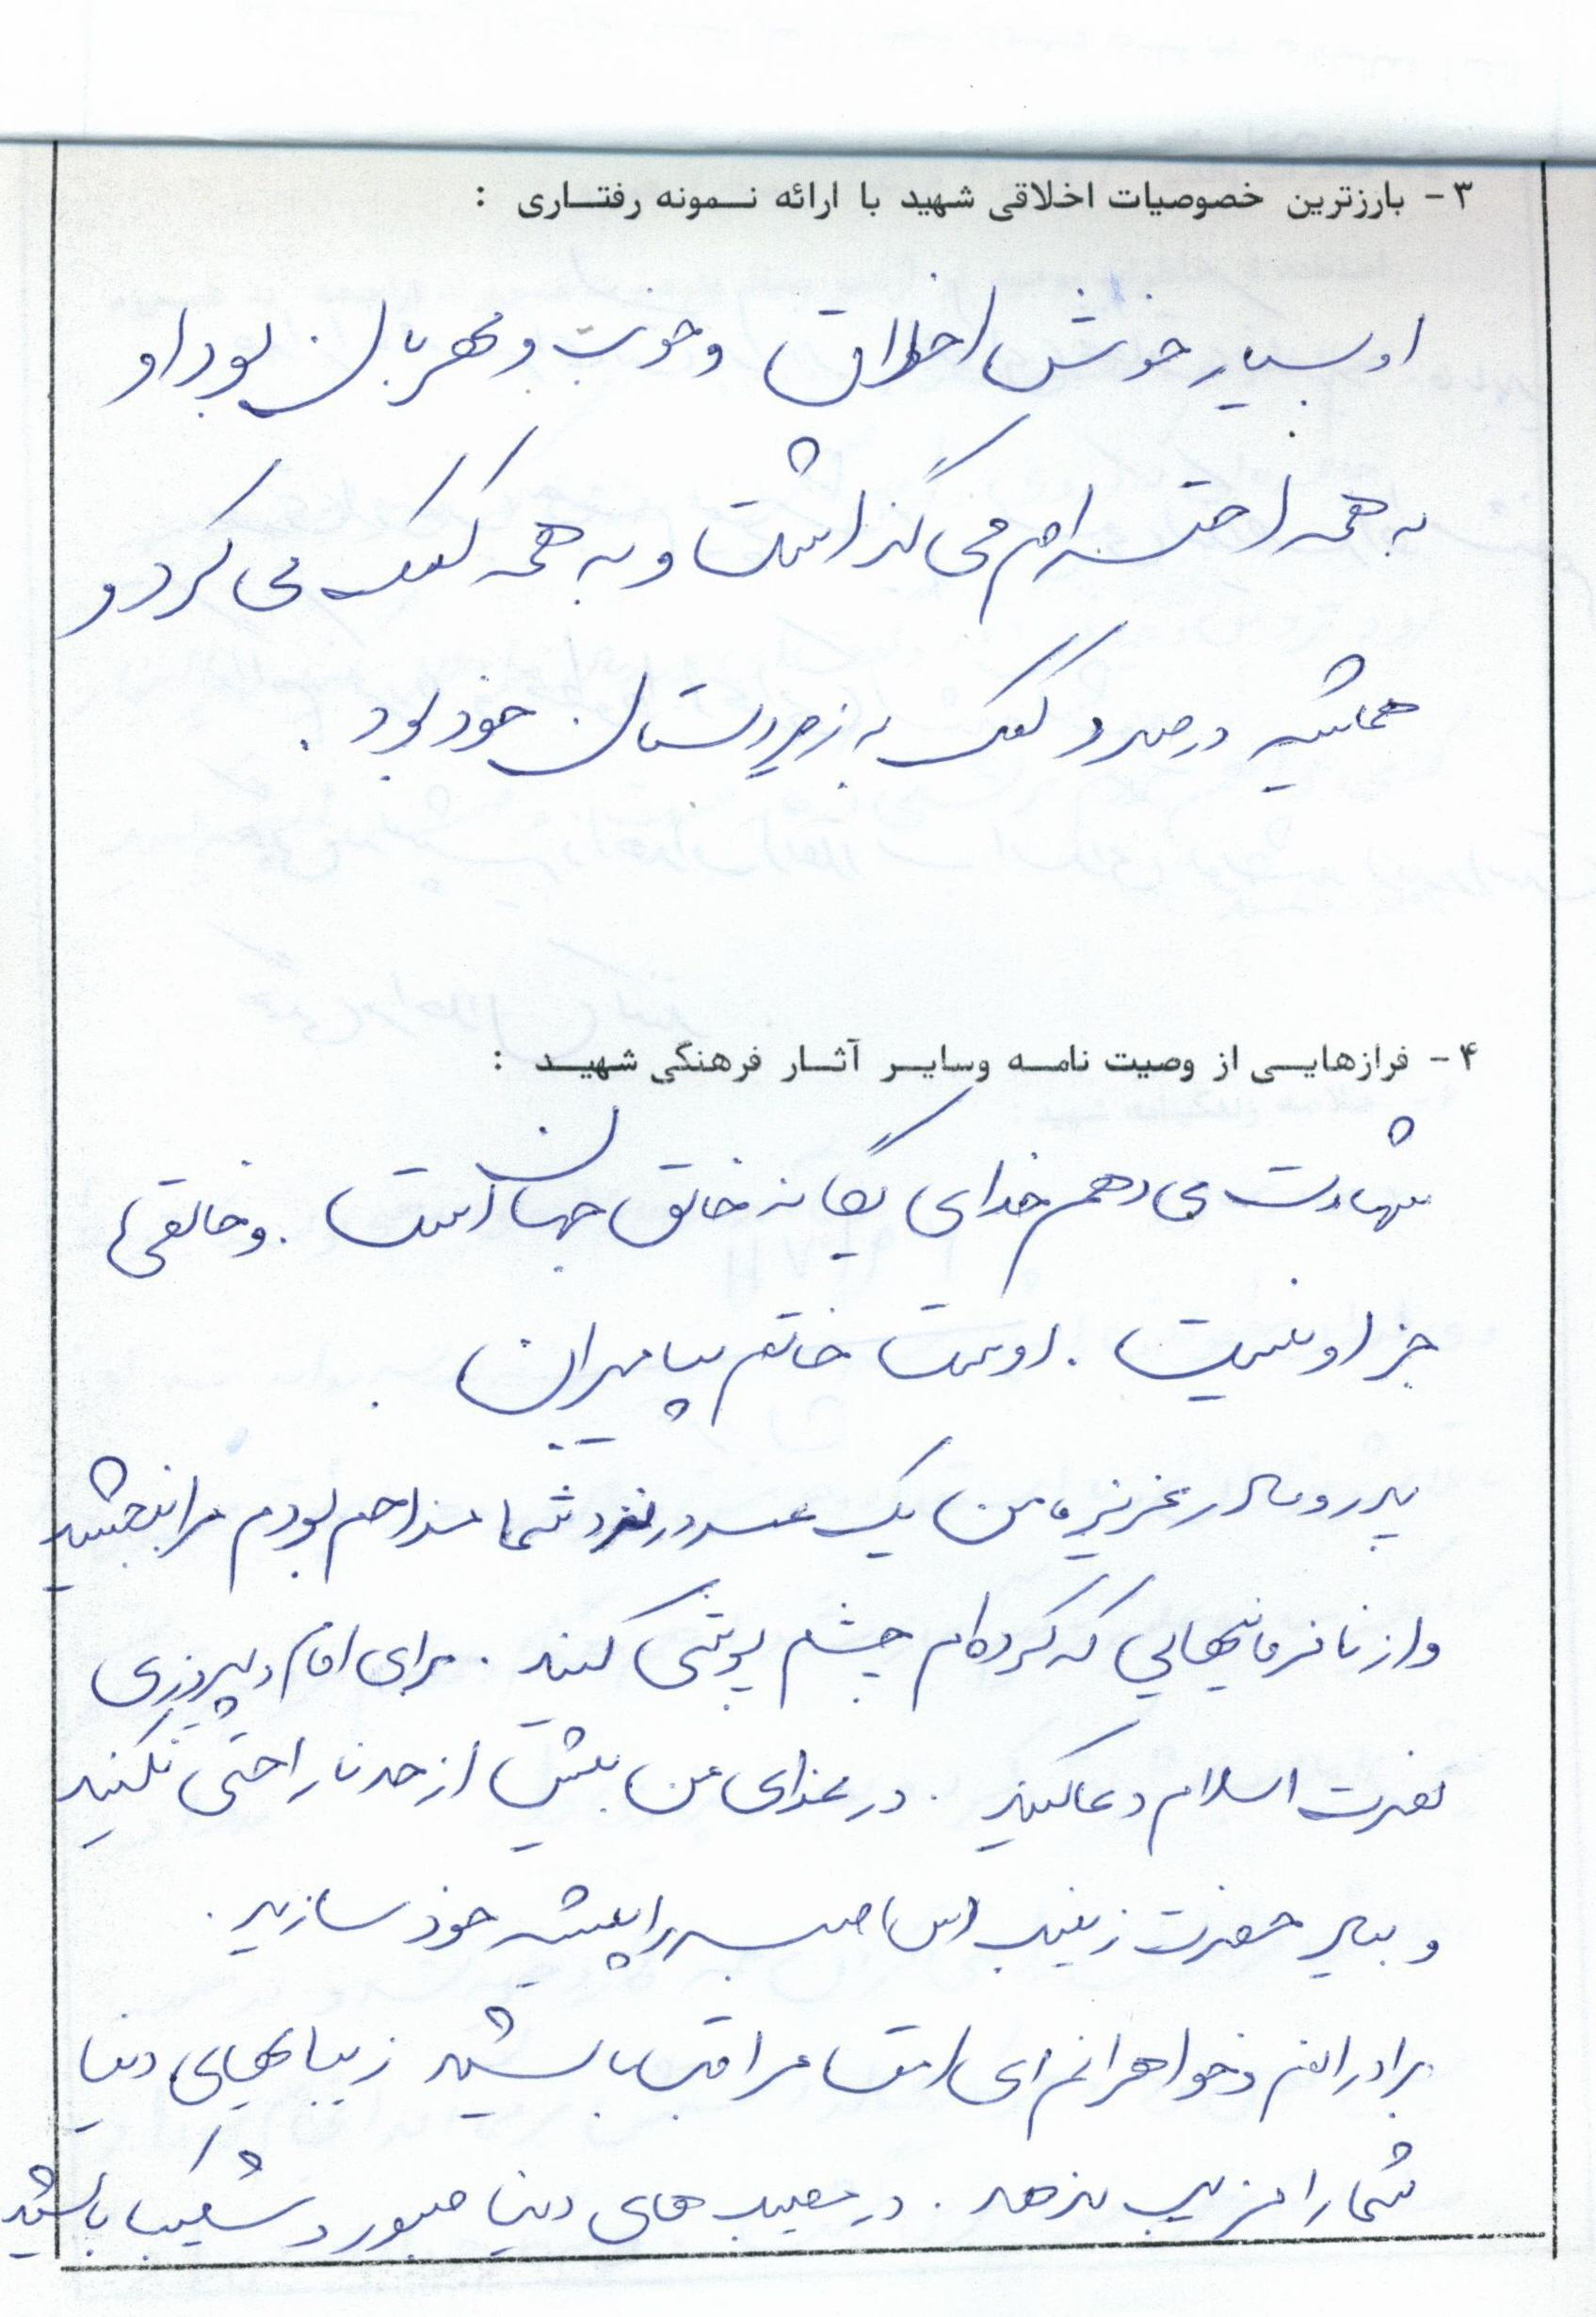 ۳ - بارزترین خصوصیات اخلاقی شهید با ارائه نمونه رفتاری :
او بسیار خوش اخلاق و خوب و مهربان بود او
به همه احترام می گذاشت و به همه کمک می کرد و
همیشه درصدد کمک به زیردستان خود بود .
۴ - فرازهایی از وصیت نامه وسایر آثار فرهنگی شهید :
شهادت می دهم خدای یگانه خالق جهان است . و خالقی
جز او نیست . اوست خاتم پیامبران .
پدر و مادر عزیزم من یک عمر در نزد شما مزاحم بودم مرا ببخشید
و از نافرمانیهایی که کرده ام چشم پوشی کنید . برای امام و پیروزی
نصرت اسلام دعا کنید . در عزای من بیش از حد ناراحتی نکنید
و بیاد حضرت زینب (س) صبر را پیشه خود سازید .
برادرانم و خواهرانم ای امت مراقب باشید زیبایهای دنیا
شما را فریب ندهد . در مصیبت های دنیا صبور و شکیبا باشید